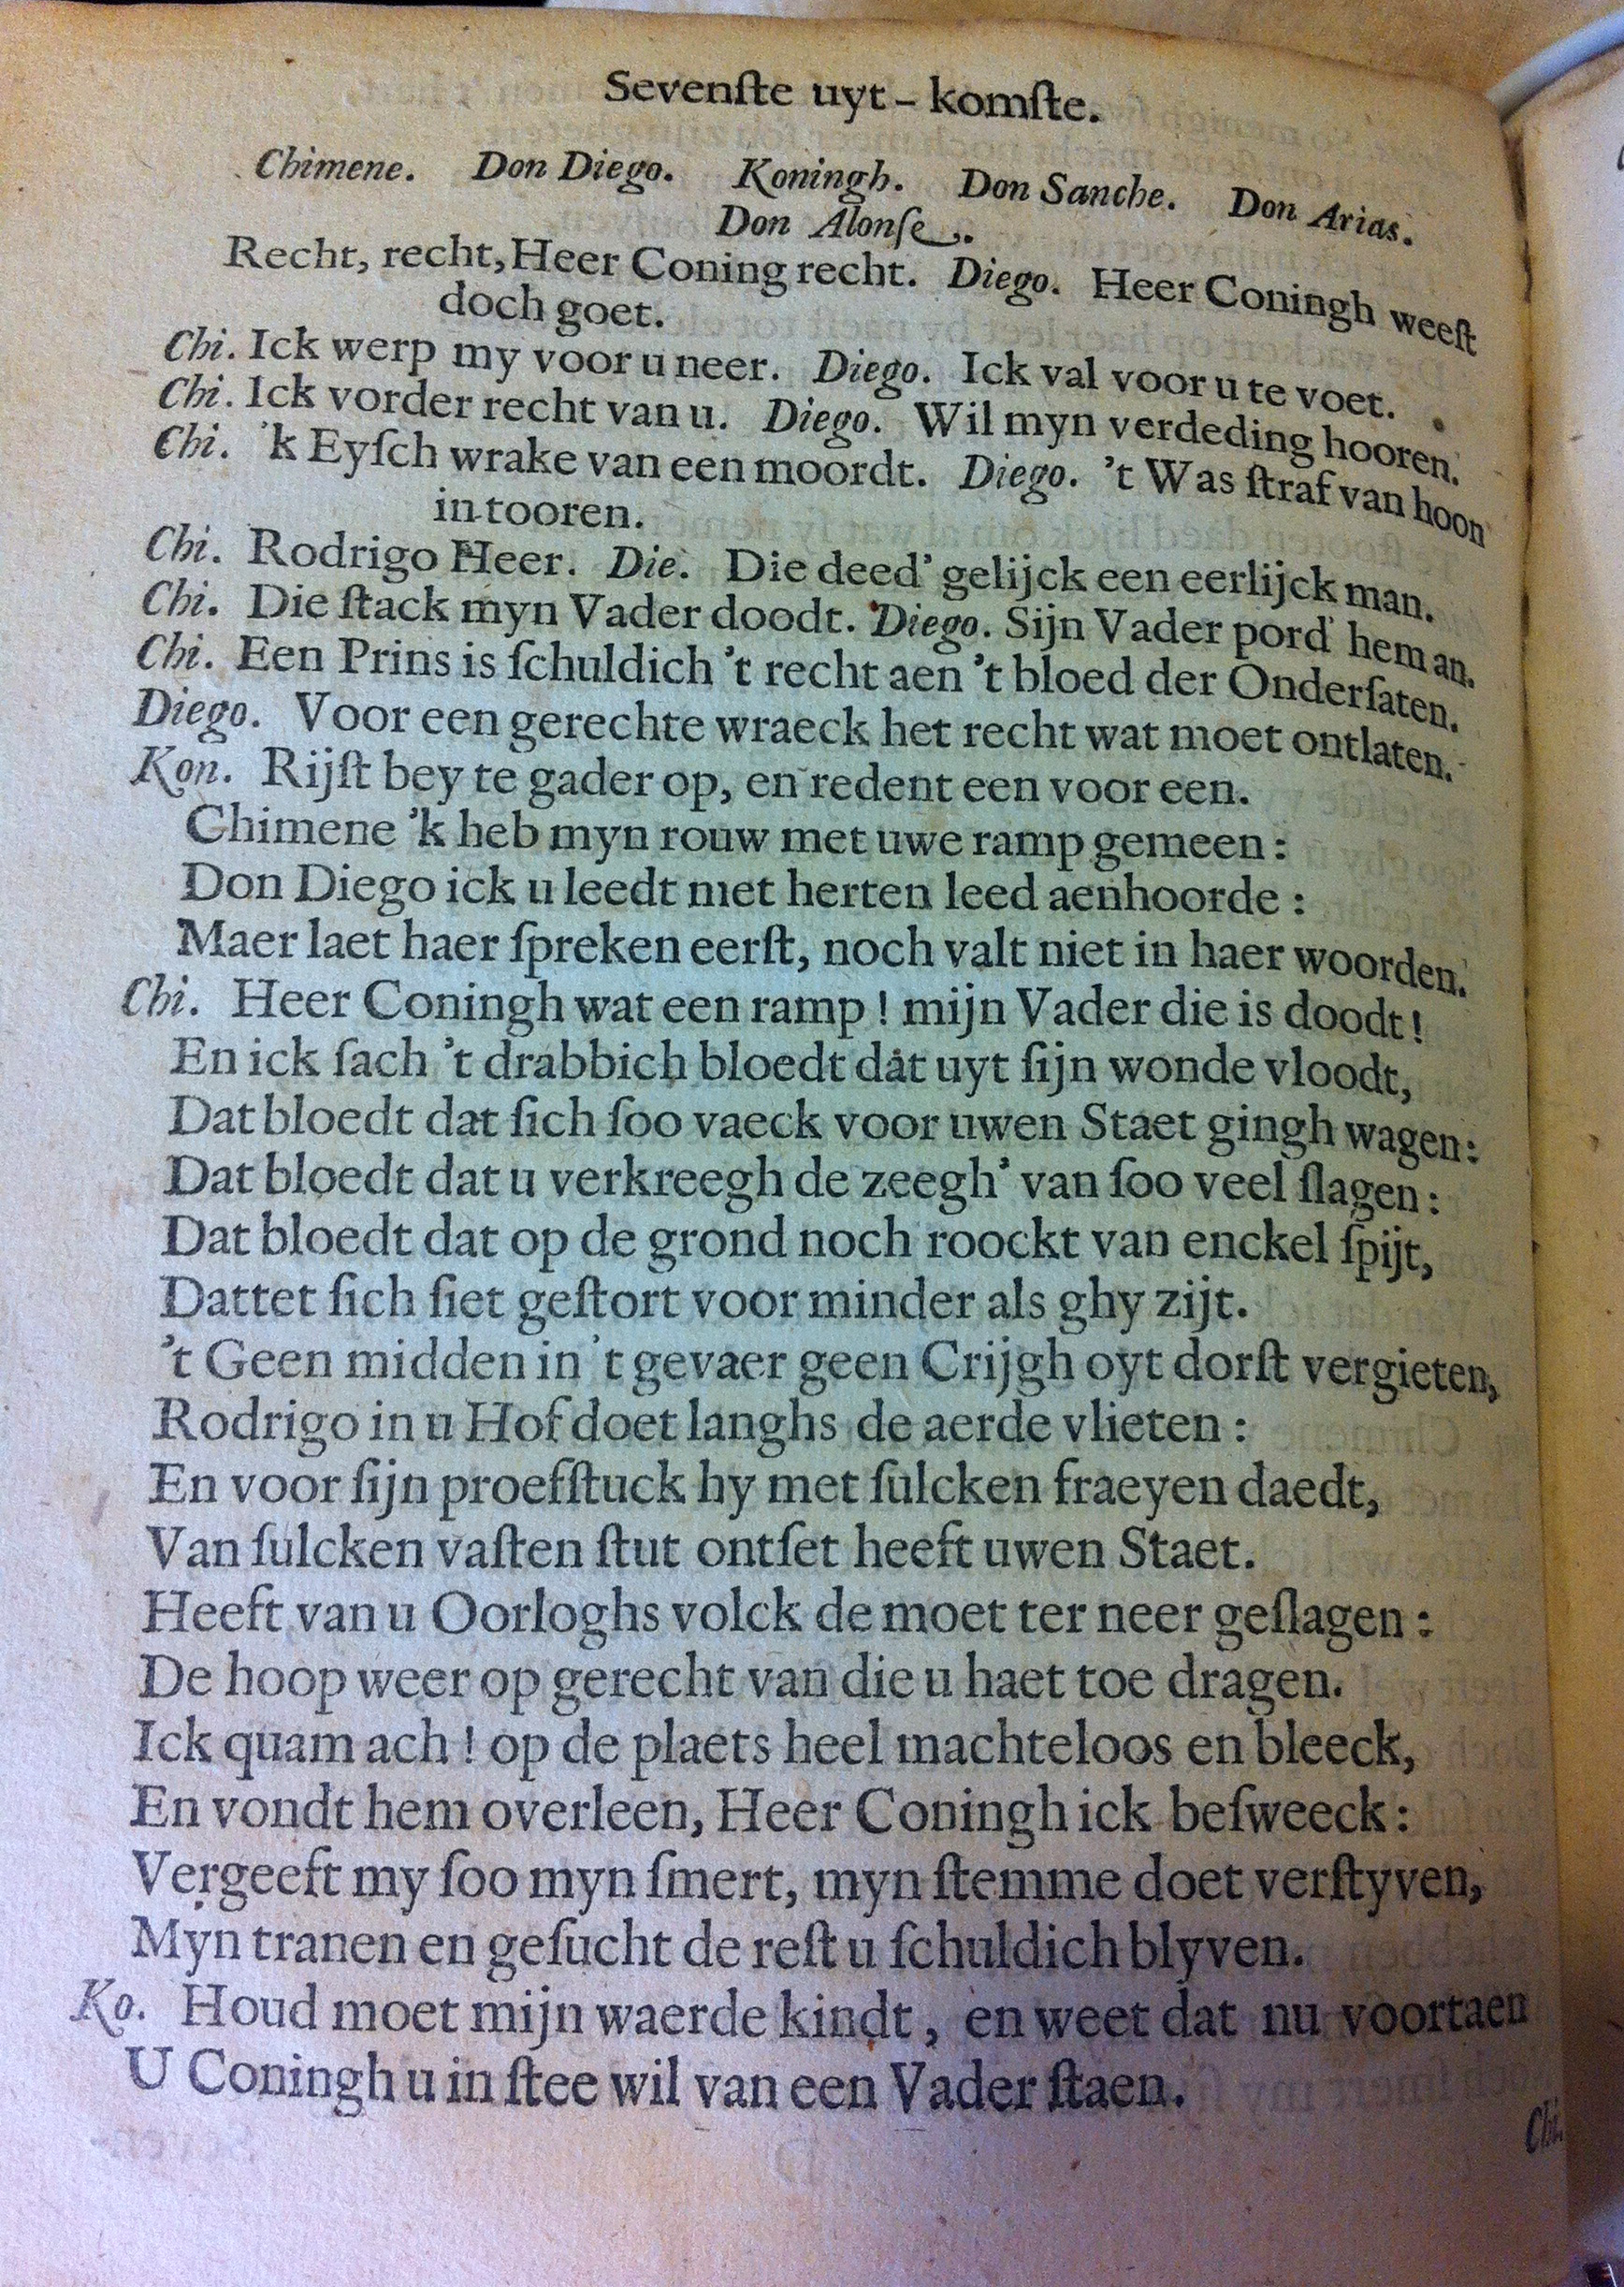 Sevenſte uyt-komſte.
Chimene. Don Diego. Koningh. Don Sanche. Don Arias.
Don Alonſe.
Recht, recht, Heer Coning recht. Diego. Heer Coningh weeſt
doch goet.
Chi. Ick werp my voor u neer. Diego. Ick val voor u te voet.
Chi. Ick vorder recht van u. Diego. Wil myn verdeding hooren.
Chi. 'k Eyſch wrake van een moordt. Diego. 't Was ſtraf van hoon
in tooren.
Chi. Rodrigo Heer. Die. Die deed' gelijck een eerlijck man.
Chi. Die ſtack myn Vader doodt. Diego. Sijn Vader pord' hem an.
Chi. Een Prins is ſchuldich 't recht aen 't bloed der Onderſaten.
Diego. Voor een gerechte wraeck het recht wat moet ontlaten.
Kon. Rijſt bey te gader op, en redent een voor een.
Chimene 'k heb myn rouw met uwe ramp gemeen:
Don Diego ick u leedt met herten leed aenhoorde:
Maer laet haer ſpreken eerſt, noch valt niet in haer woorden.
Chi. Heer Coningh wat een ramp! mijn Vader die is doodt!
En ick ſach 't drabbich bloedt dat uyt ſijn wonde vloodt,
Dat bloedt dat ſich ſoo vaeck voor uwen Staet gingh wagen:
Dat bloedt dat u verkreegh de zeegh' van ſoo veel ſlagen:
Dat bloedt dat op de grond noch roockt van enckel ſpijt,
Dattet ſich ſiet geſtort voor minder als ghy zijt.
't Geen midden in 't gevaer geen Crijgh oyt dorſt vergieten,
Rodrigo in u Hof doet langhs de aerde vlieten:
En voor ſijn proefſtuck hy met ſulcken fraeyen daedt,
Van ſulcken vaſten ſtut ontſet heeft uwen Staet.
Heeft van u Oorloghs volck de moet ter neer geſlagen:
De hoop weer op gerecht van die u haet toe dragen.
Ick quam ach! op de plaets heel machteloos en bleeck,
En vondt hem overleen, Heer Coningh ick beſweeck:
Vergeeft my ſoo myn ſmert, myn ſtemme doet verſtyven,
Myn tranen en geſucht de reſt u ſchuldich blyven.
Ko. Houd moet mijn waerde kindt, en weet dat nu voortaen
U Coningh u in ſtee wil van een Vader ſtaen.
Chi.